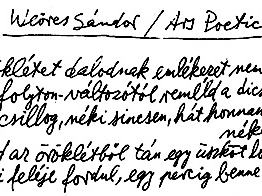 Weöres Sándor / Ars Poetic
öklétet dalodnak emlékezet nem
folyton-változótól reméld a dics
csillog, néki sincsen, hát honnan
néke
az öröklétből tán egy üszköt lo
i feléje fordul, egy percig benne